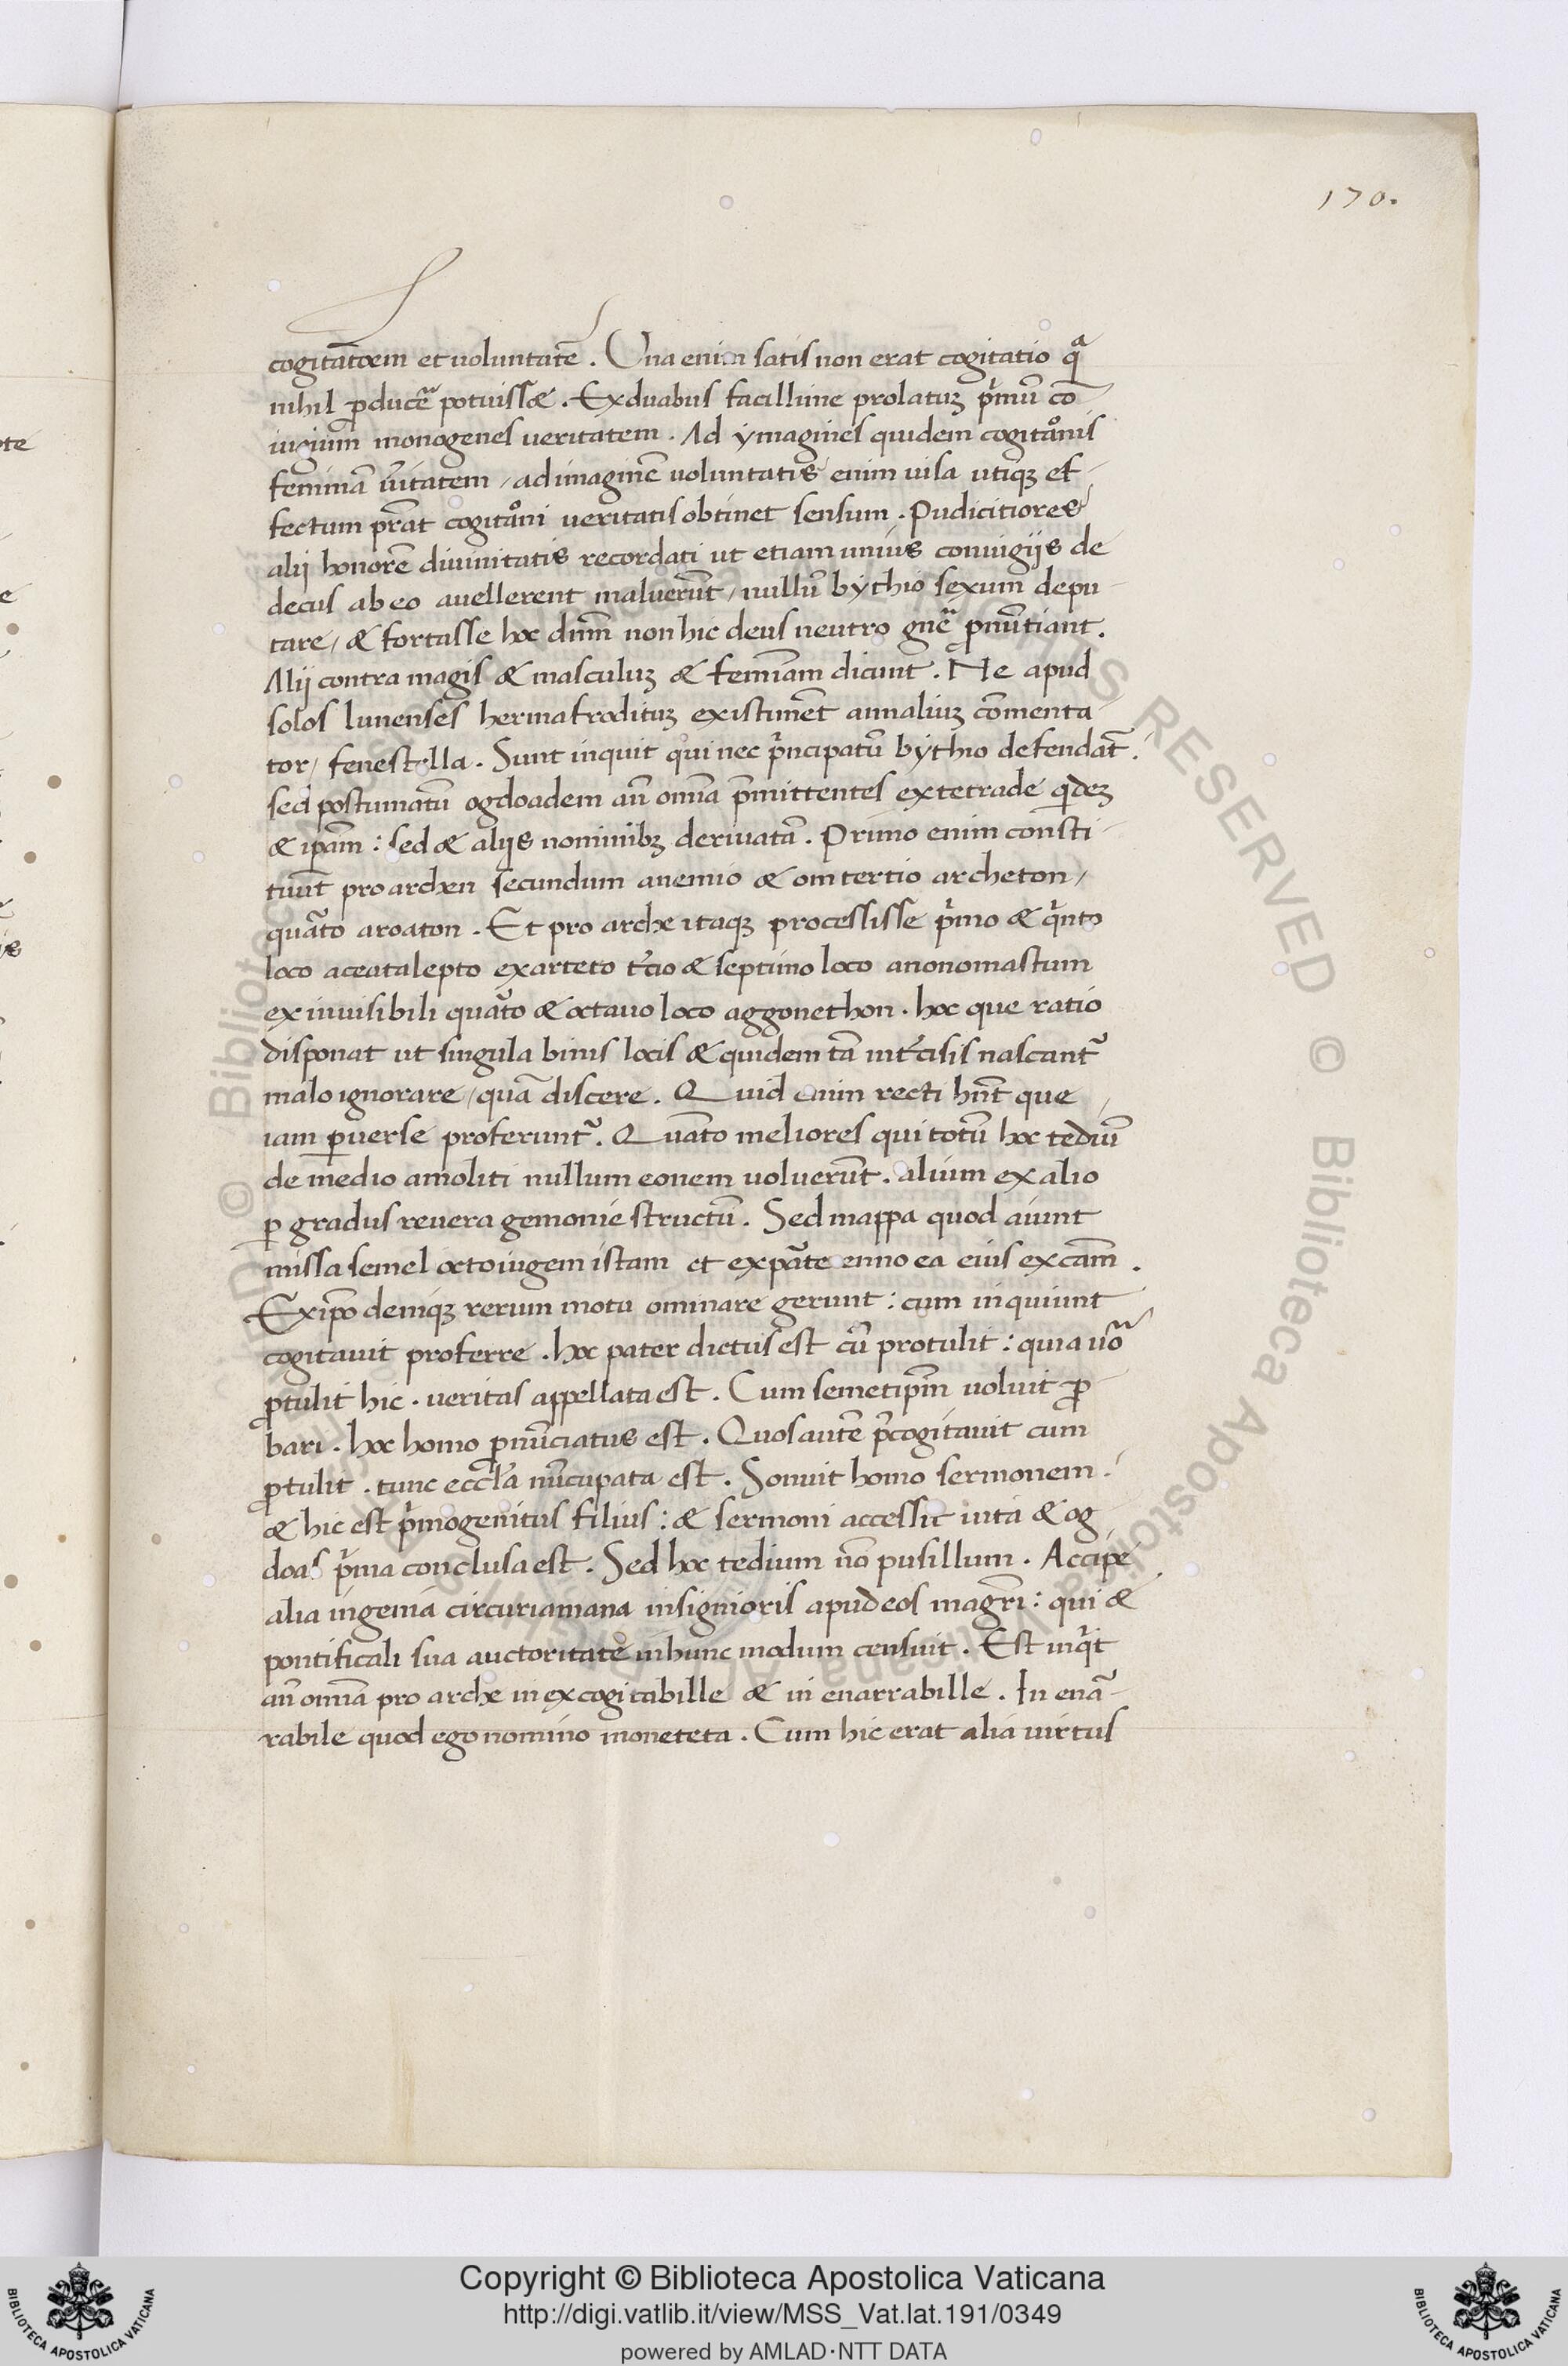 170.
cogitatōem et voluntatē. Una enim satis non erat cogitatio qͣ
nihil ꝓducē̃ potuissæ. Ex duabus facillime prolatuꝫ pͥmū cō
iugium monogenes veritatem. Ad ymagines quidem cogitaͦnis
feminā v̄itatem / ad imaginē voluntatis enim uisa utiqꝫ ef-
fectum prēat cogitaͦni veritatis obtinet sensum. Pudicitiores
alij honorē divinitatis recordati ut etiam unius coniugijs de
decus ab eo avellerent malverūt / nullū bythio sexum depu-
tare / & fortasse hoc dnm̄ non hic deus neutro gn̄e ꝓnūtiant.
Alij contra magis & masculuꝫ & feminam dicunt. Ne apud
solos lunenses hermafrodituꝫ existimēt annaliuꝫ cōmenta
tor / fenestella. Sunt inquit qui nec pͥncipatū bythio defendāt.
sed postumatū ogdoadem an̄ omīa p̄mittentes ex tetrade qͥdeꝫ
& ip̄am: sed & alijs nominibꝫ derivatā. Primo enim consti-
tuūt pro archen secundum anenno & om tertio archeton /
quāto aroaton. Et pro arche itaqꝫ processisse pͥmo & qͥnto
loco aceatalepto ex arteto t̄cio & septimo loco anonomastum
ex invisibili quāto & octavo loco aggonethon. hoc que ratio
disponat ut singula binis locis & quidem tā int̄cisis nascantᷣ
malo ignorare / quā discere. Quid enim recti hn̄t que
iam ꝑverse proferuntᷣ. Quāto meliores qui totū hoc tediū
de medio amoliti nullum eonem voluerūt. alium ex alio
ꝑ gradus revera gemonie structū. Sed mappa quod aiunt
missa semel octoiugem istam et ex pāte enno ea eius excam̄.
Ex ip̄o deniqꝫ rerum motu ominare gerunt: cum inquiunt
cogitavit proferre. hoc pater dictus est cū protulit: quia vō
ꝓtulit hic. veritas appellata est. Cum semetip̄m voluit ꝓ-
bari. hoc homo ꝓnūciatus est. Quos autē p̄cogitavit cum
ꝓtulit. tunc eccl̄a nūcupata est. Sonuit homo sermonem.
& hic est pͥmogenitus filius: & sermoni accessit uita & og
doas pͥma conclusa est. Sed hoc tedium nō pusillum. Accipe
alia ingenia circuriamana insignioris apud eos magrī: qui &
pontificali sua auctoritate in hunc modum censuit. Est inqͥt
an̄ omīa pro arche in excogitabille & in enarrabille. In enā-
rabile quod ego nomino moneteta. Cum hic erat alia virtus
Copyright © Biblioteca Apostolica Vaticana
http://digi.vatlib.it/view/MSS_Vat.lat.191/0349
powered by AMLAD·NTT DATA